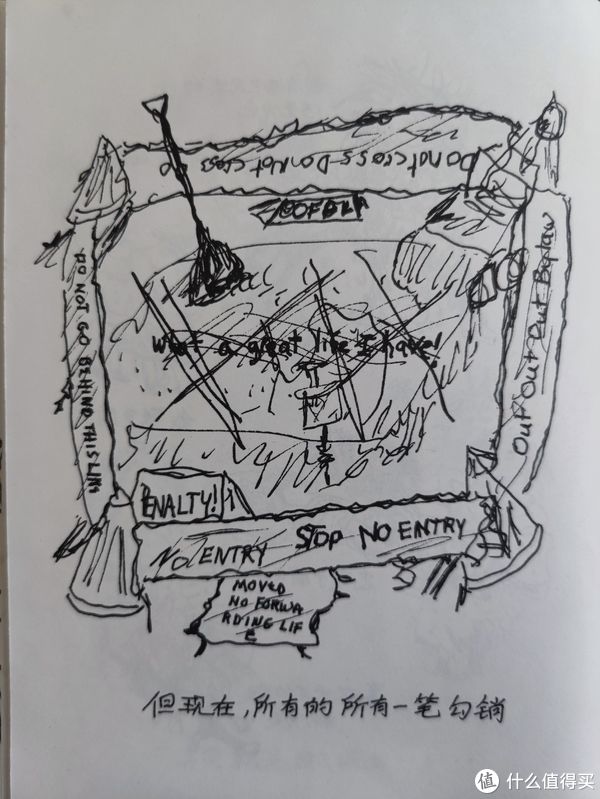 Do not cross Do Not cross
DO NOT GO BEHIND THIS LINE
What a great life I have!
Out Out Out
PENALTY!
NO ENTRY STOP NO ENTRY
MOVED
NO FORWA
RDING LIF
E
但现在,所有的所有一笔勾销
值 什么值得买